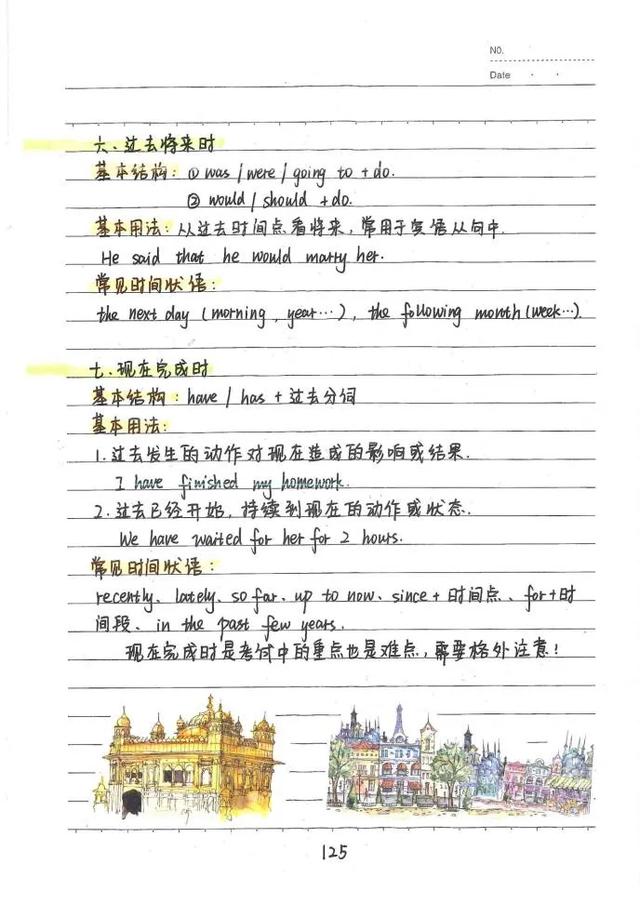 NO.
Date · ·
六、过去将来时
基本结构：① was / were / going to + do.
② would / should + do.
基本用法：从过去时间点看将来，常用于宾语从句中.
He said that he would marry her.
常见时间状语：
the next day (morning, year…), the following month (week…).
七、现在完成时
基本结构：have / has + 过去分词
基本用法：
1.过去发生的动作对现在造成的影响或结果.
I have finished my homework.
2.过去已经开始，持续到现在的动作或状态.
We have waited for her for 2 hours.
常见时间状语：
recently、lately、so far、up to now、since + 时间点、for + 时
间段、in the past few years.
现在完成时是考试中的重点也是难点，需要格外注意！
125